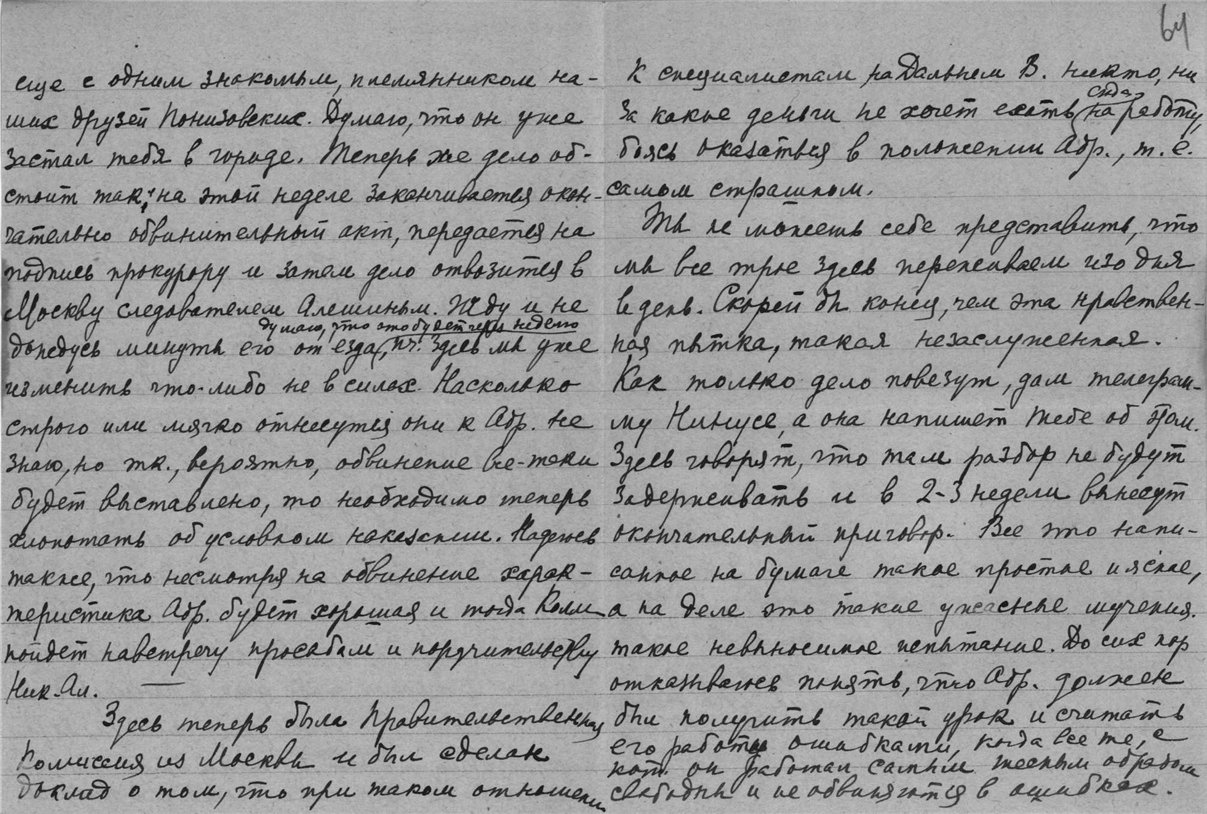 64
еще с одним знакомым, племянником на-
ших друзей Понизовских. Думаю, что он уже
застал тебя в городе. Теперь же дело об-
стоит так: на этой неделе заканчивается окон-
чательно обвинительный акт, передается на
подпись прокурору и затем дело отвозится в
Москву следователем Алешиным. Жду и не
думаю, что это будет через неделю
дождусь минуты его от'езда, п.ч. здесь мы уже
изменить что-либо не в силах. Насколько
строго или мягко отнесутся они к Абр. не
знаю, но т.к., вероятно, обвинение все-таки
будет выставлено, то необходимо теперь
хлопотать об условном наказании. Надеюсь
также, что несмотря на обвинение харак-
теристика Абр. будет хорошая и тогда Колл.
пойдет навстречу просьбам и поручительству
Ник. Ал. —
Здесь теперь была Правительственная
Комиссия из Москвы и был сделан
доклад о том, что при таком отношении
к специалистам на Дальнем В. никто, ни
за какие деньги не хочет ехать сюда на работу,
боясь оказаться в положении Абр., т.е.
самом страшном.
Ты не можешь себе представить, что
мы все трое здесь переживаем изо дня
в день. Скорей бы конец, чем эта нравствен-
ная пытка, такая незаслуженная.
Как только дело повезут, дам телеграм-
му Нинусе, а она напишет тебе об этом.
Здесь говорят, что там разбор не будут
задерживать и в 2-3 недели вынесут
окончательный приговор. Все это напи-
санное на бумаге такое простое и ясное,
а на деле это такие ужасные мучения.
такое невыносимое испытание. До сих пор
отказываюсь понять, что Абр. должен
был получить такой урок и считать
его работы ошибками, когда все те, с
кот. он работал самым тесным образом
свободны и не обвиняются в ошибках.